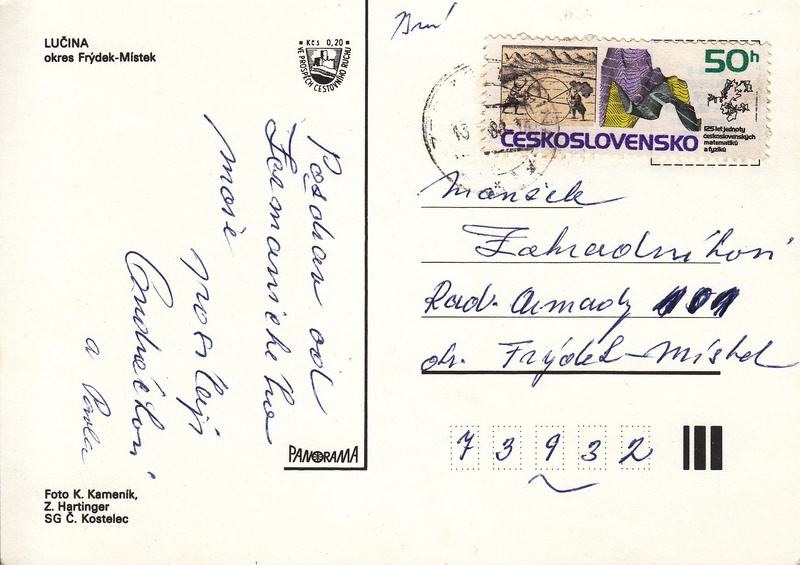 LUČINA
okres Frýdek-Místek
Kčs 0,20
VE PROSPĚCH CESTOVNÍHO RUCHU
Pozdrav od
Žermanického
moře
posílají
Ondračkovi
a Pavla
PANORAMA
Foto K. Kameník,
Z. Hartinger
SG Č. Kostelec
50h
125 let jednoty
československých
matematiků
a fyziků
ČESKOSLOVENSKO
Manžele
Zahradníkovi
Rud. Armady
ok. Frýdek-Místek
73932